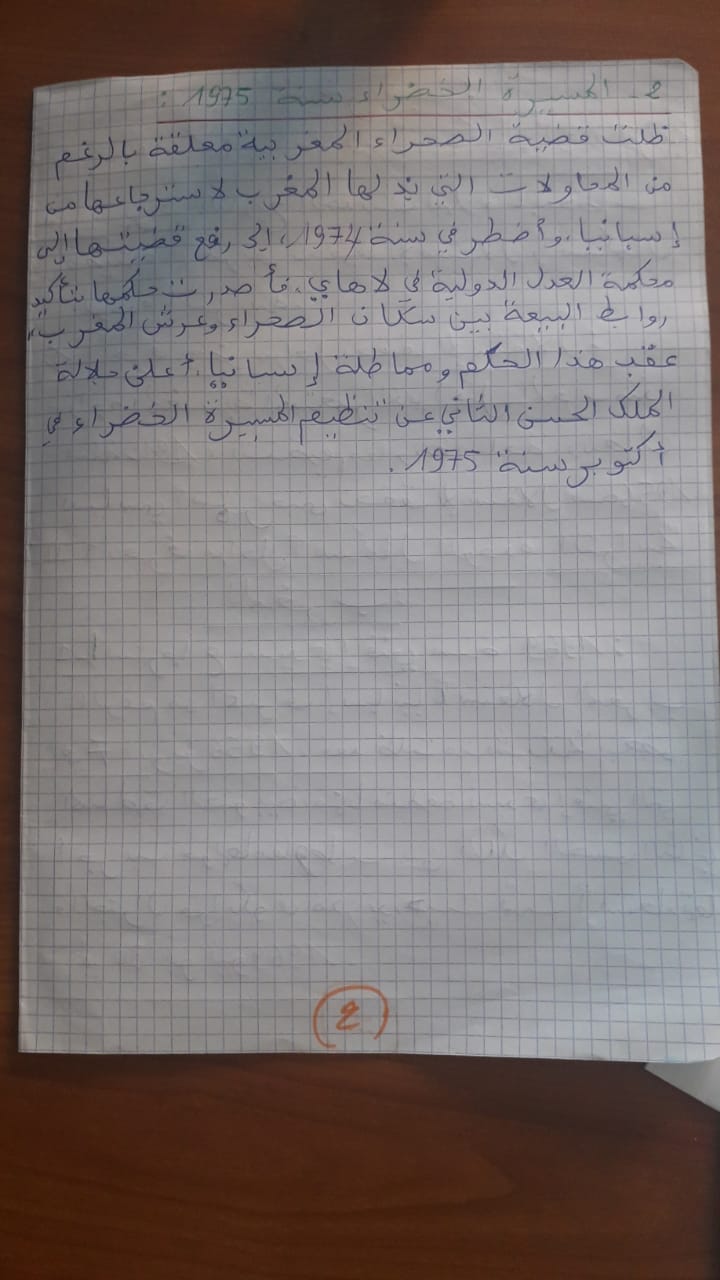 2- المسيرة الخضراء سنة 1975 :
ظلت قضية الصحراء المغربية معلقة بالرغم
من المحاولات التي بذلها المغرب لاسترجاعها من
إسبانيا. وأضطر في سنة 1974، إلى رفع قضيتها إلى
محكمة العدل الدولية في لاهاي. فأصدرت حكمها بتأكيد
روابط البيعة بين سكان الصحراء وعرش المغرب،
عقب هذا الحكم ومماطلة إسبانيا، أعلن جلالة
الملك الحسن الثاني عن تنظيم المسيرة الخضراء في
أكتوبر سنة 1975.
2